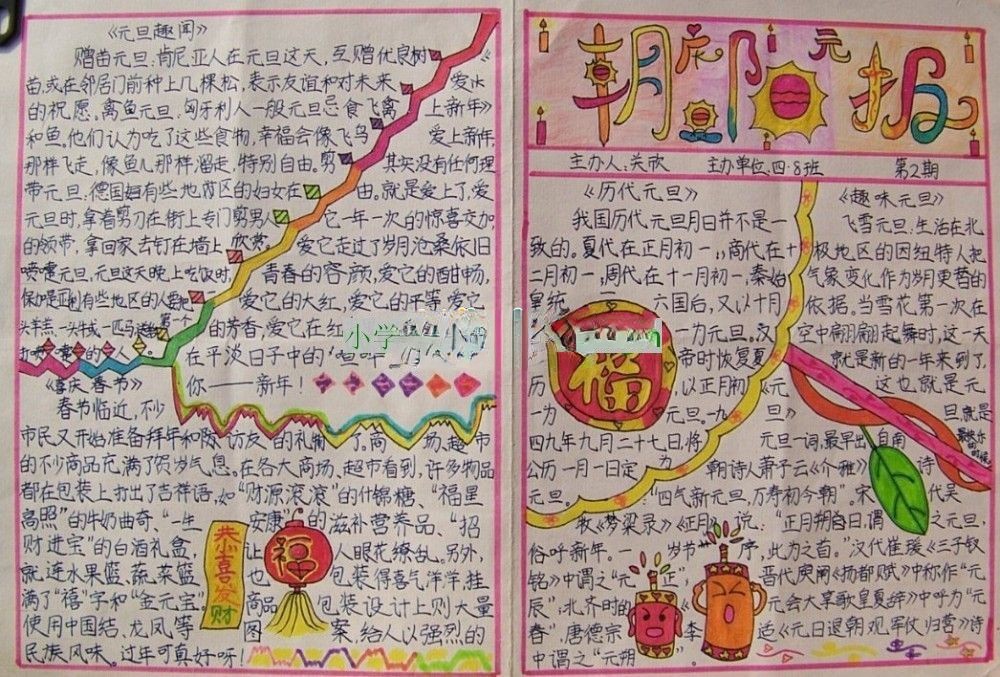 《元旦趣闻》
赠苗元旦:肯尼亚人在元旦这天,互赠优良树
苗,或在邻居门前种上几棵松,表示友谊和对未来
的祝愿。禽鱼元旦,匈牙利人一般元旦忌食飞禽
和鱼。他们认为吃了这些食物,幸福会像飞鸟
那样飞走,像鱼儿那样溜走,特别自由。剪
带元旦,德国妇有些地苈区的妇女在
元旦时,拿着剪刀在街上专门剪男人
的领带,拿回家去钉在墙上欣赏。
喷嚏元旦,元旦这天晚上吃饭时,
有些地区的人要把
第一个
头羊羔一头牛或一匹马送给
打喷嚏的客人。
《爱
上新年》
爱上新年,
其实没有任何理
由。就是爱上了,爱
它一年一次的惊喜交加,
爱它走过了岁月沧桑依旧
青春的容颜,爱它的酣畅,
爱它的大红,爱它的平等,爱它
的芳香,爱它在红
在平淡日子中的
你——新年!
《喜庆春节》
春节临近,不少
市民又开始准备拜年和 访友的礼物了。商场、超市
的不少商品充满了贺岁气息。在各大商场、超市看到,许多物品
都在包装上打出了吉祥语,如“财源滚滚”的什锦糖、“福里
高照”的牛奶曲奇、“一生安康”的滋补营养品、“招
财进宝”的白酒礼盒,让人眼花缭乱。另外,
就连水果篮、蔬菜篮也包装得喜气洋洋,挂
满了“禧”字和“金元宝”。商品包装设计上则大量
使用中国结、龙凤等图案,给人以强烈的
民族风味。过年可真好呀!
恭喜发财
福
朝阳报
庆元旦
主办人:关欣 主办单位:四·8班 第2期
《历代元旦》
我国历代元旦月日并不是一
致的。夏代在正月初一,商代在十
二月初一,周代在十一月初一,秦始
皇统六国后,又以十月
一为元旦。汉
帝时恢复夏
历,以正月初
一为元旦。一九
四九年九月二十七日,将
公历一月一日定为
元旦。
福
《趣味元旦》
飞雪元旦:生活在北
极地区的因纽特人把
气象变化作为岁月更替的
依据。当雪花第一次在
空中翩翩起舞时,这一天
就是新的一年来到了,
这也就是元
旦
《元
旦》
元旦一词,最早出自南
朝诗人萧子云《介雅》诗
“四气新元旦,万寿初今朝”宋代吴
牧《梦梁录》《正月》说:“正月朔日,谓之元旦,
俗呼新年。一岁节序,此为之首。”汉代崔瑗《三子钗
铭》中谓之“元正”晋代庾阐《扬都赋》中称作“元
辰”;北齐时的《元会大享歌皇夏辞》中呼为“元
春”,唐德宗李适《元日退朝观军仗归营》诗
中谓之“元朔”。
小学